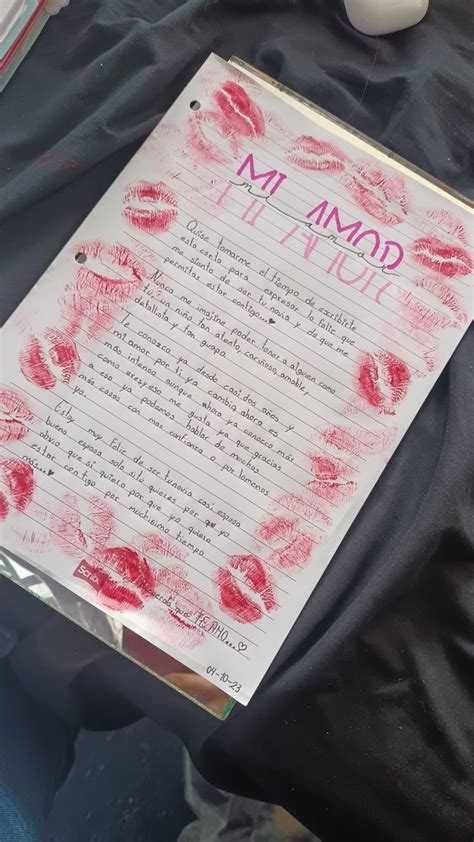 MI AMOR
mi amor
MI AMOR
Quise tomarme el tiempo de escribirte
esta carta para expresar lo feliz que
me siento de ser tu novia y de que me
permitas estar contigo...♥
Nunca me imagine poder tener a alguien como
tú, un niño tan atento, cariñoso, amable,
detallista y tan guapo.
Te conozco ya desde casi dos años y
mi amor por ti ya cambio ahora es
más intenso, aunque ahora ya conozco más
como eres, y eso me gusta ya que gracias
a eso ya podemos hablar de muchas
más cosas con mas confianza o por lomenos
yo.
Estoy muy Feliz de ser tunovia casi esposa
bueno esposa solo sitú quieres por que yo
obvio que sí quiero por que yo quiero
estar con tigo por muchisimo tiempo
más...♥
que: TE AMO...♡
04-10-23